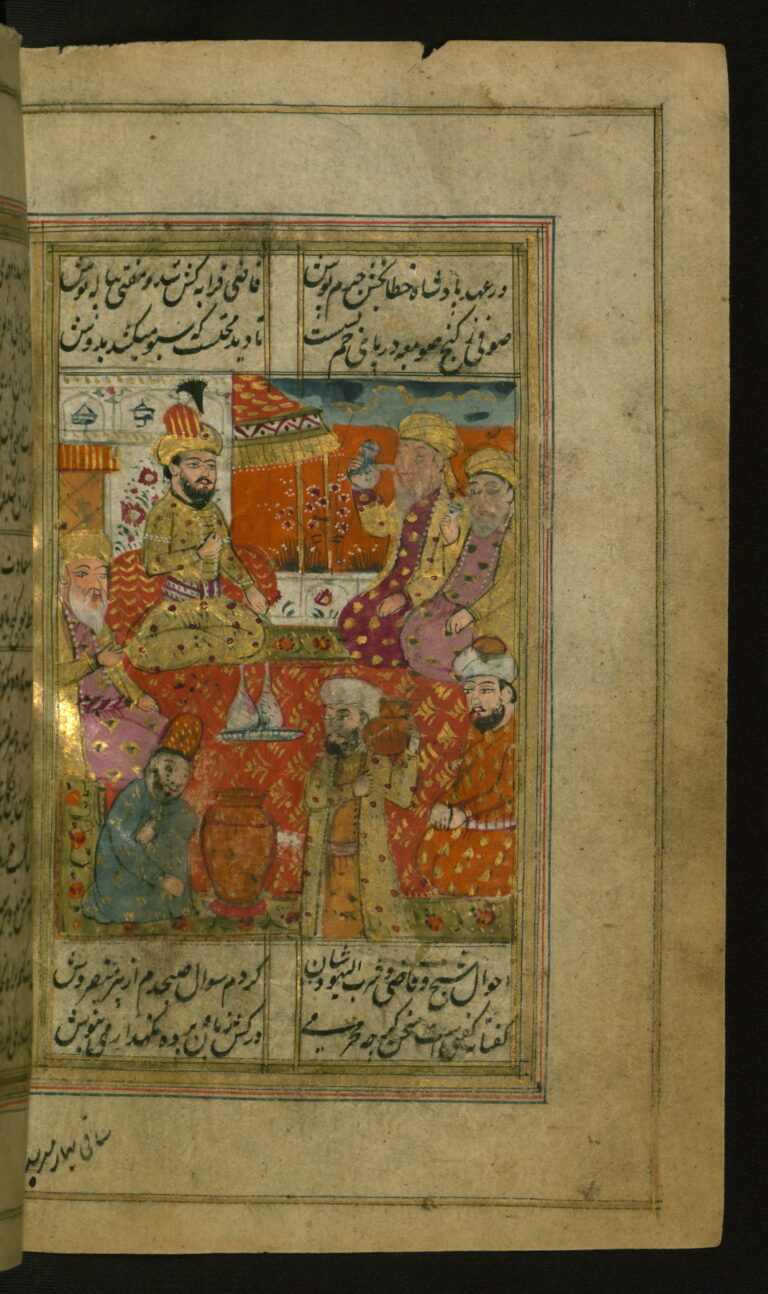 در عهد پادشاه خطابخش جرم پوش قاضی قرابه کش شد و مفتی پیاله نوش
صوفی ز کنج صومعه در پای خم نشست تا دید محتسب که سبو میکشد بدوش
احوال شیخ و قاضی و شرب الیهودشان کردم سوال صبحدم از پیر میفروش
گفتا نه گفتنی است سخن گرچه محرمی درکش زبان و پرده نگهدار و می بنوش
ساقی بهار میرسد